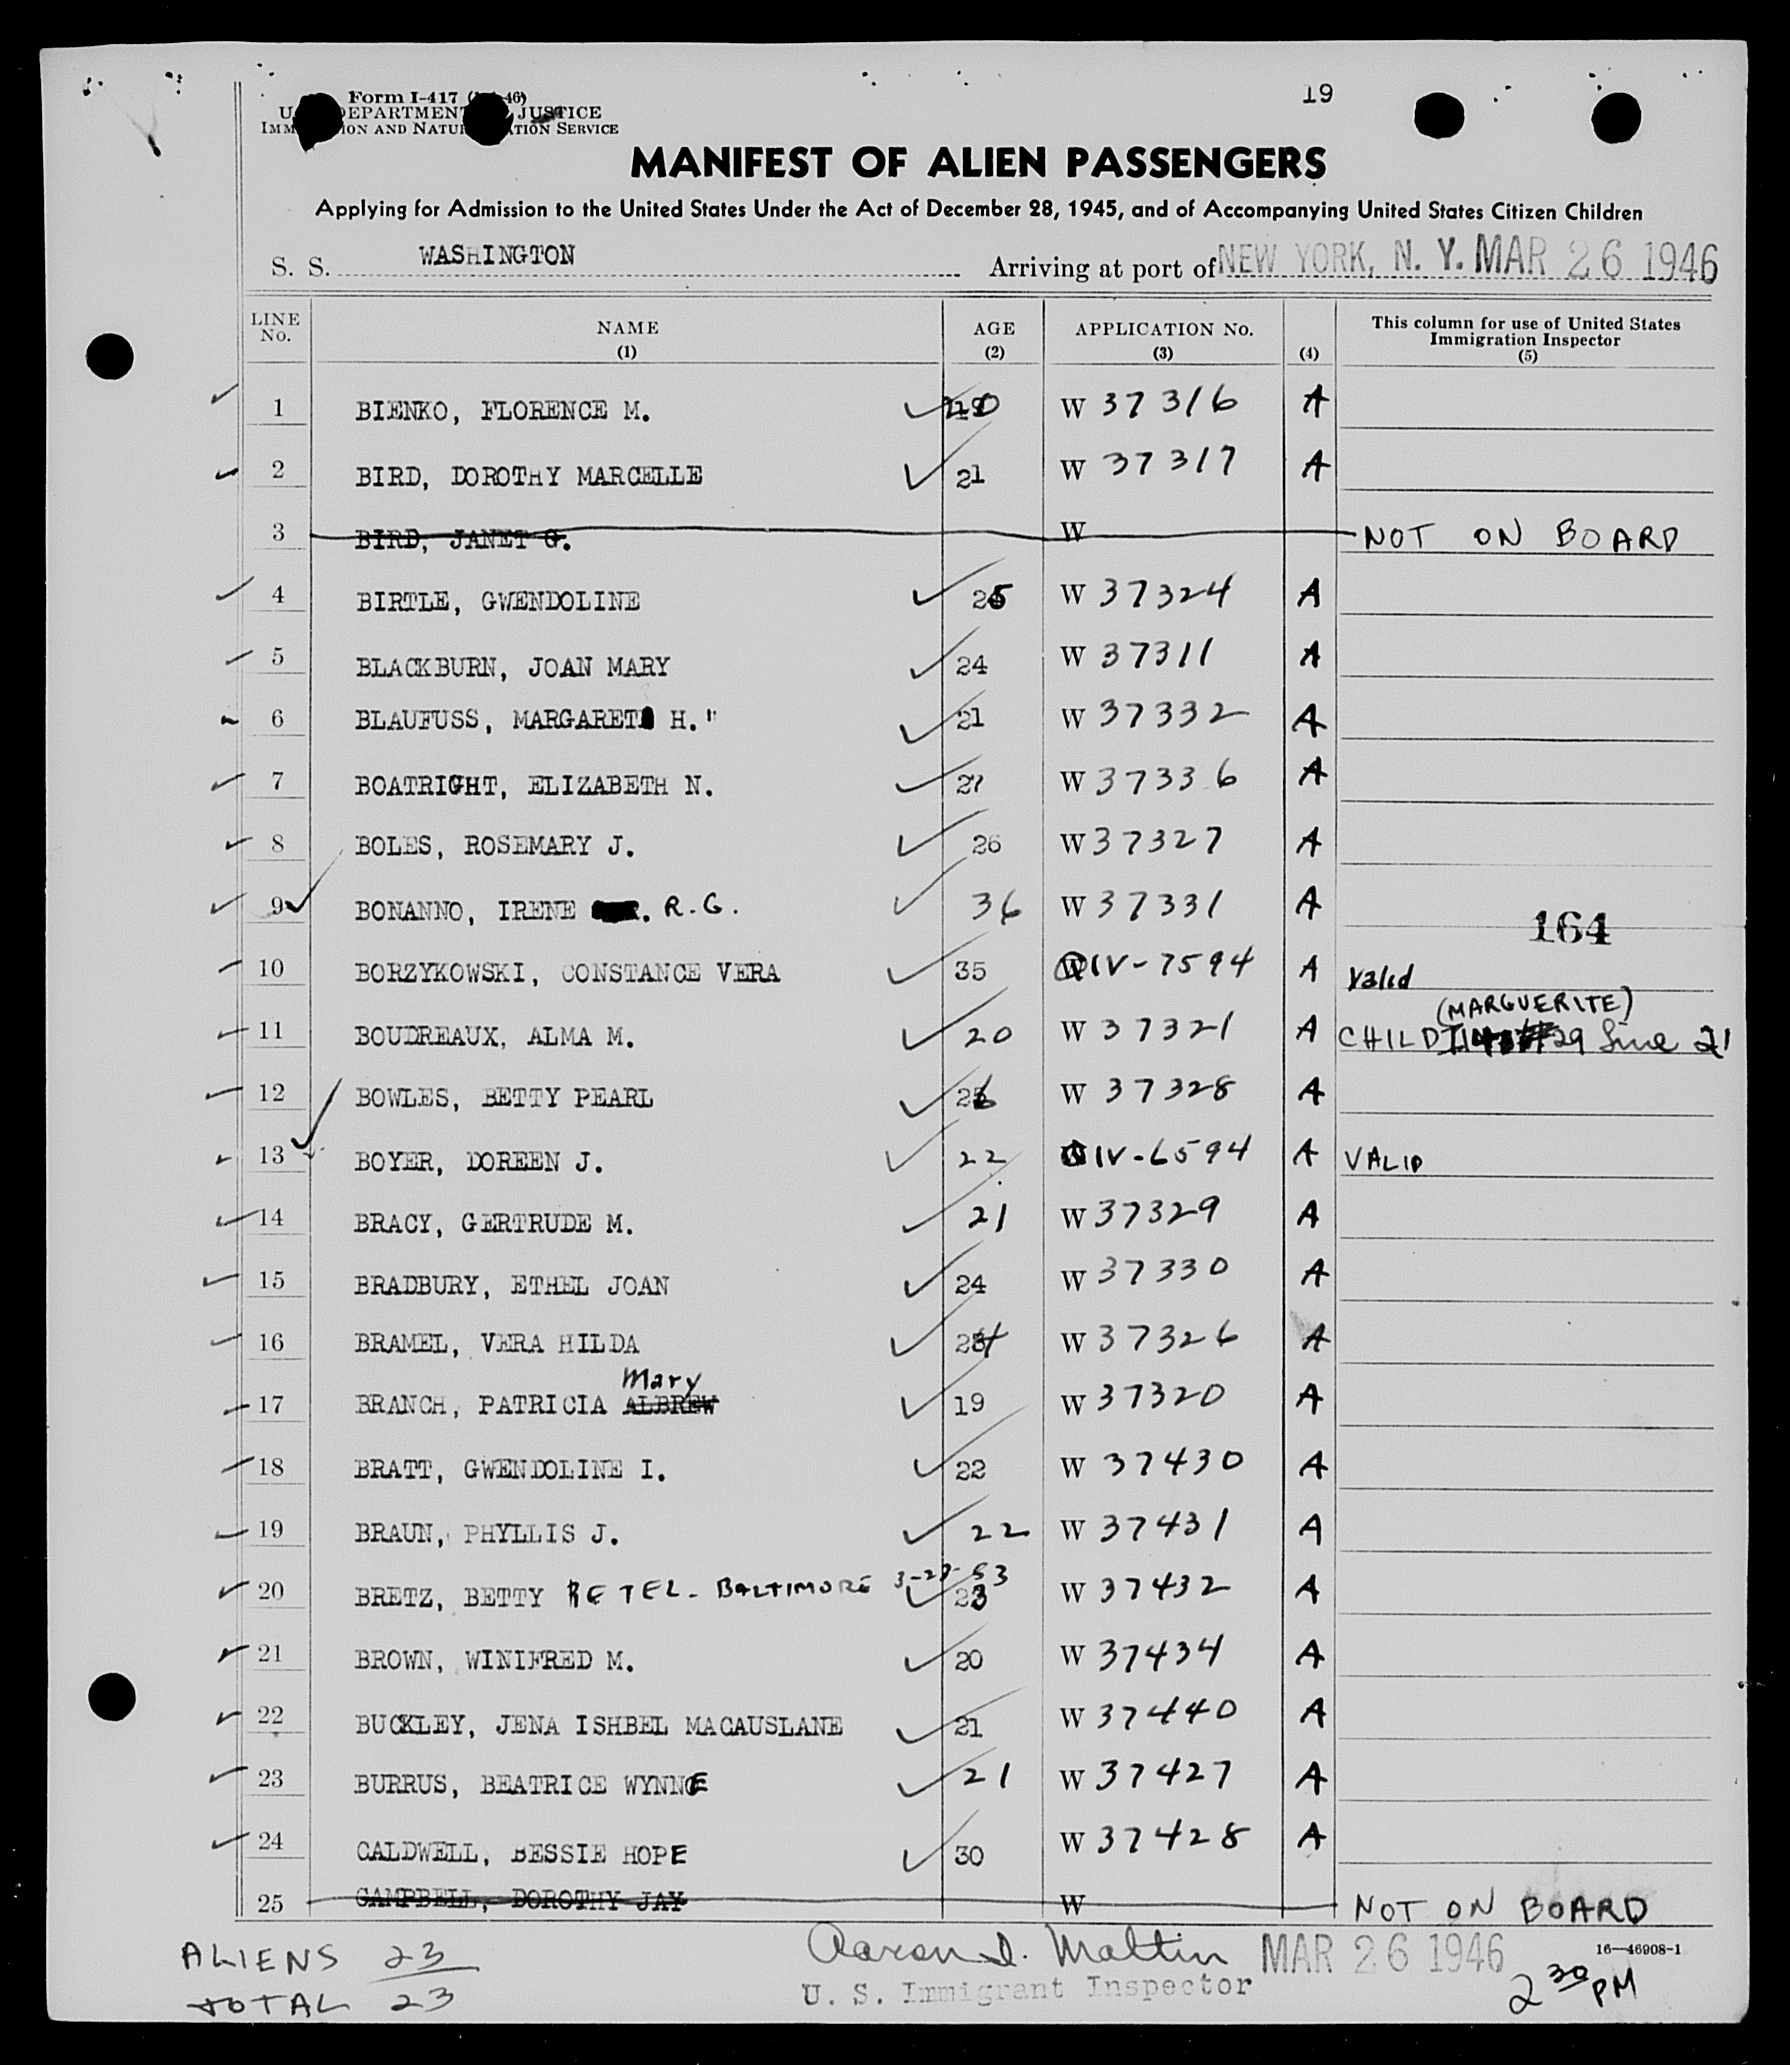 Form I-417 46)
19
DEPARTMENT JUSTICE
IMM ION AND NATU ATION SERVICE
MANIFEST OF ALIEN PASSENGERS
Applying for Admission to the United States Under the Act of December 28, 1945, and of Accompanying United States Citizen Children
S. S. WASHINGTON Arriving at port of NEW YORK, N. Y. MAR 26 1946
LINE No. NAME (1) AGE (2) APPLICATION No. (3) (4) This column for use of United States Immigration Inspector (5)
1 BIENKO, FLORENCE M. W 37316 A
2 BIRD, DOROTHY MARCELLE 21 W 37317 A
3 BIRD, JANET G. W NOT ON BOARD
4 BIRTLE, GWENDOLINE 25 W 37324 A
5 BLACKBURN, JOAN MARY 24 W 37311 A
6 BLAUFUSS, MARGARET H." 21 W 37332 A
7 BOATRIGHT, ELIZABETH N. 27 W 37336 A
8 BOLES, ROSEMARY J. 26 W 37327 A
9 BONANNO, IRENE R.G. 36 W 37331 A
164
10 BORZYKOWSKI, CONSTANCE VERA 35 QIV-7594 A Valid
(MARGUERITE)
11 BOUDREAUX, ALMA M. 20 W 37321 A CHILD 29 Line 21
12 BOWLES, BETTY PEARL 26 W 37328 A
13 BOYER, DOREEN J. 22 QIV-6594 A VALID
14 BRACY, GERTRUDE M. 21 W 37329 A
15 BRADBURY, ETHEL JOAN 24 W 37330 A
16 BRAMEL, VERA HILDA 24 W 37326 A
Mary
17 BRANCH, PATRICIA ALBREW 19 W 37320 A
18 BRATT, GWENDOLINE I. 22 W 37430 A
19 BRAUN, PHYLLIS J. 22 W 37431 A
20 BRETZ, BETTY RE TEL- BALTIMORE 3-27-53 23 W 37432 A
21 BROWN, WINIFRED M. 20 W 37434 A
22 BUCKLEY, JENA ISHBEL MACAUSLANE 21 W 37440 A
23 BURRUS, BEATRICE WYNNE 21 W 37427 A
24 CALDWELL, BESSIE HOPE 30 W 37428 A
25 CAMPBELL, DOROTHY JAY W NOT ON BOARD
ALIENS 23
TOTAL 23
Aaron I. Maltin MAR 26 1946
U. S. Immigrant Inspector
16—46908-1
2 30 PM